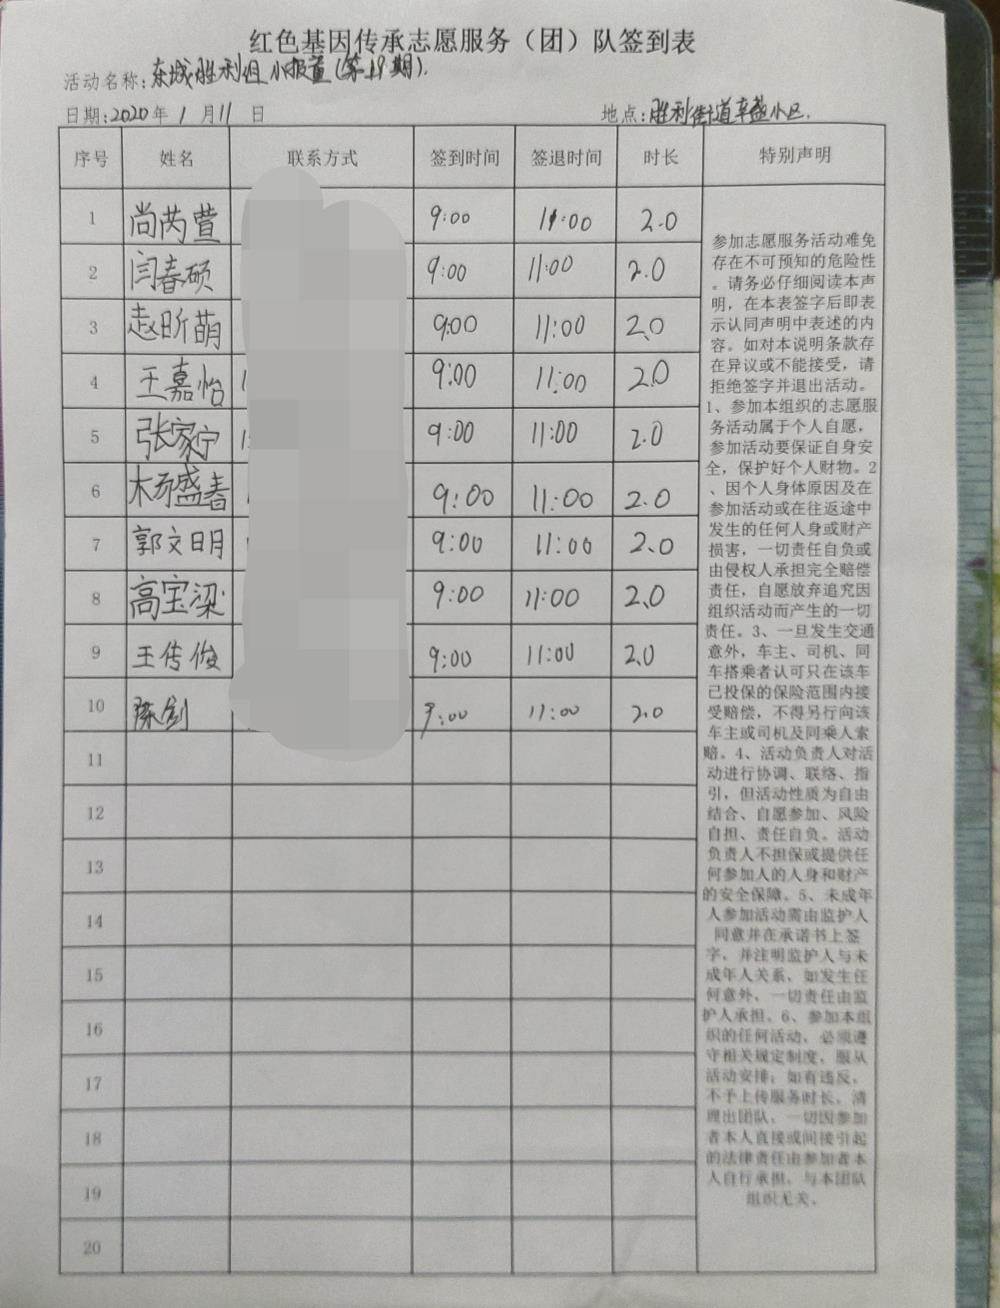 红色基因传承志愿服务（团）队签到表
活动名称：东城胜利组小报童（第19期）.
日期：2020年1月11日 地点：胜利街道辛盛小区.
序号 姓名 联系方式 签到时间 签退时间 时长 特别声明
1 尚芮萱 9:00 11:00 2.0
2 闫春硕 9:00 11:00 2.0
3 赵昕萌 9:00 11:00 2.0
4 王嘉怡 1 9:00 11:00 2.0
5 张家宁 1 9:00 11:00 2.0
6 杨盛春 9:00 11:00 2.0
7 郭文明 9:00 11:00 2.0
8 高宝梁 9:00 11:00 2.0
9 王传俊 9:00 11:00 2.0
10 陈剑 9:00 11:00 2.0
11
12
13
14
15
16
17
18
19
20
参加志愿服务活动难免
存在不可预知的危险性
。请务必仔细阅读本声
明，在本表签字后即表
示认同声明中表述的内
容。如对本说明条款存
在异议或不能接受，请
拒绝签字并退出活动。
1、参加本组织的志愿服
务活动属于个人自愿，
参加活动要保证自身安
全，保护好个人财物。2
、因个人身体原因及在
参加活动或在往返途中
发生的任何人身或财产
损害，一切责任自负或
由侵权人承担完全赔偿
责任，自愿放弃追究因
组织活动而产生的一切
责任。3、一旦发生交通
意外，车主、司机、同
车搭乘者认可只在该车
已投保的保险范围内接
受赔偿，不得另行向该
车主或司机及同乘人索
赔。4、活动负责人对活
动进行协调、联络、指
引，但活动性质为自由
结合、自愿参加、风险
自担、责任自负。活动
负责人不担保或提供任
何参加人的人身和财产
的安全保障。5、未成年
人参加活动需由监护人
同意并在承诺书上签
字，并注明监护人与未
成年人关系，如发生任
何意外，一切责任由监
护人承担。6、参加本组
织的任何活动，必须遵
守相关规定制度，服从
活动安排；如有违反，
不予上传服务时长，清
理出团队。一切因参加
者本人直接或间接引起
的法律责任由参加者本
人自行承担，与本团队
组织无关。